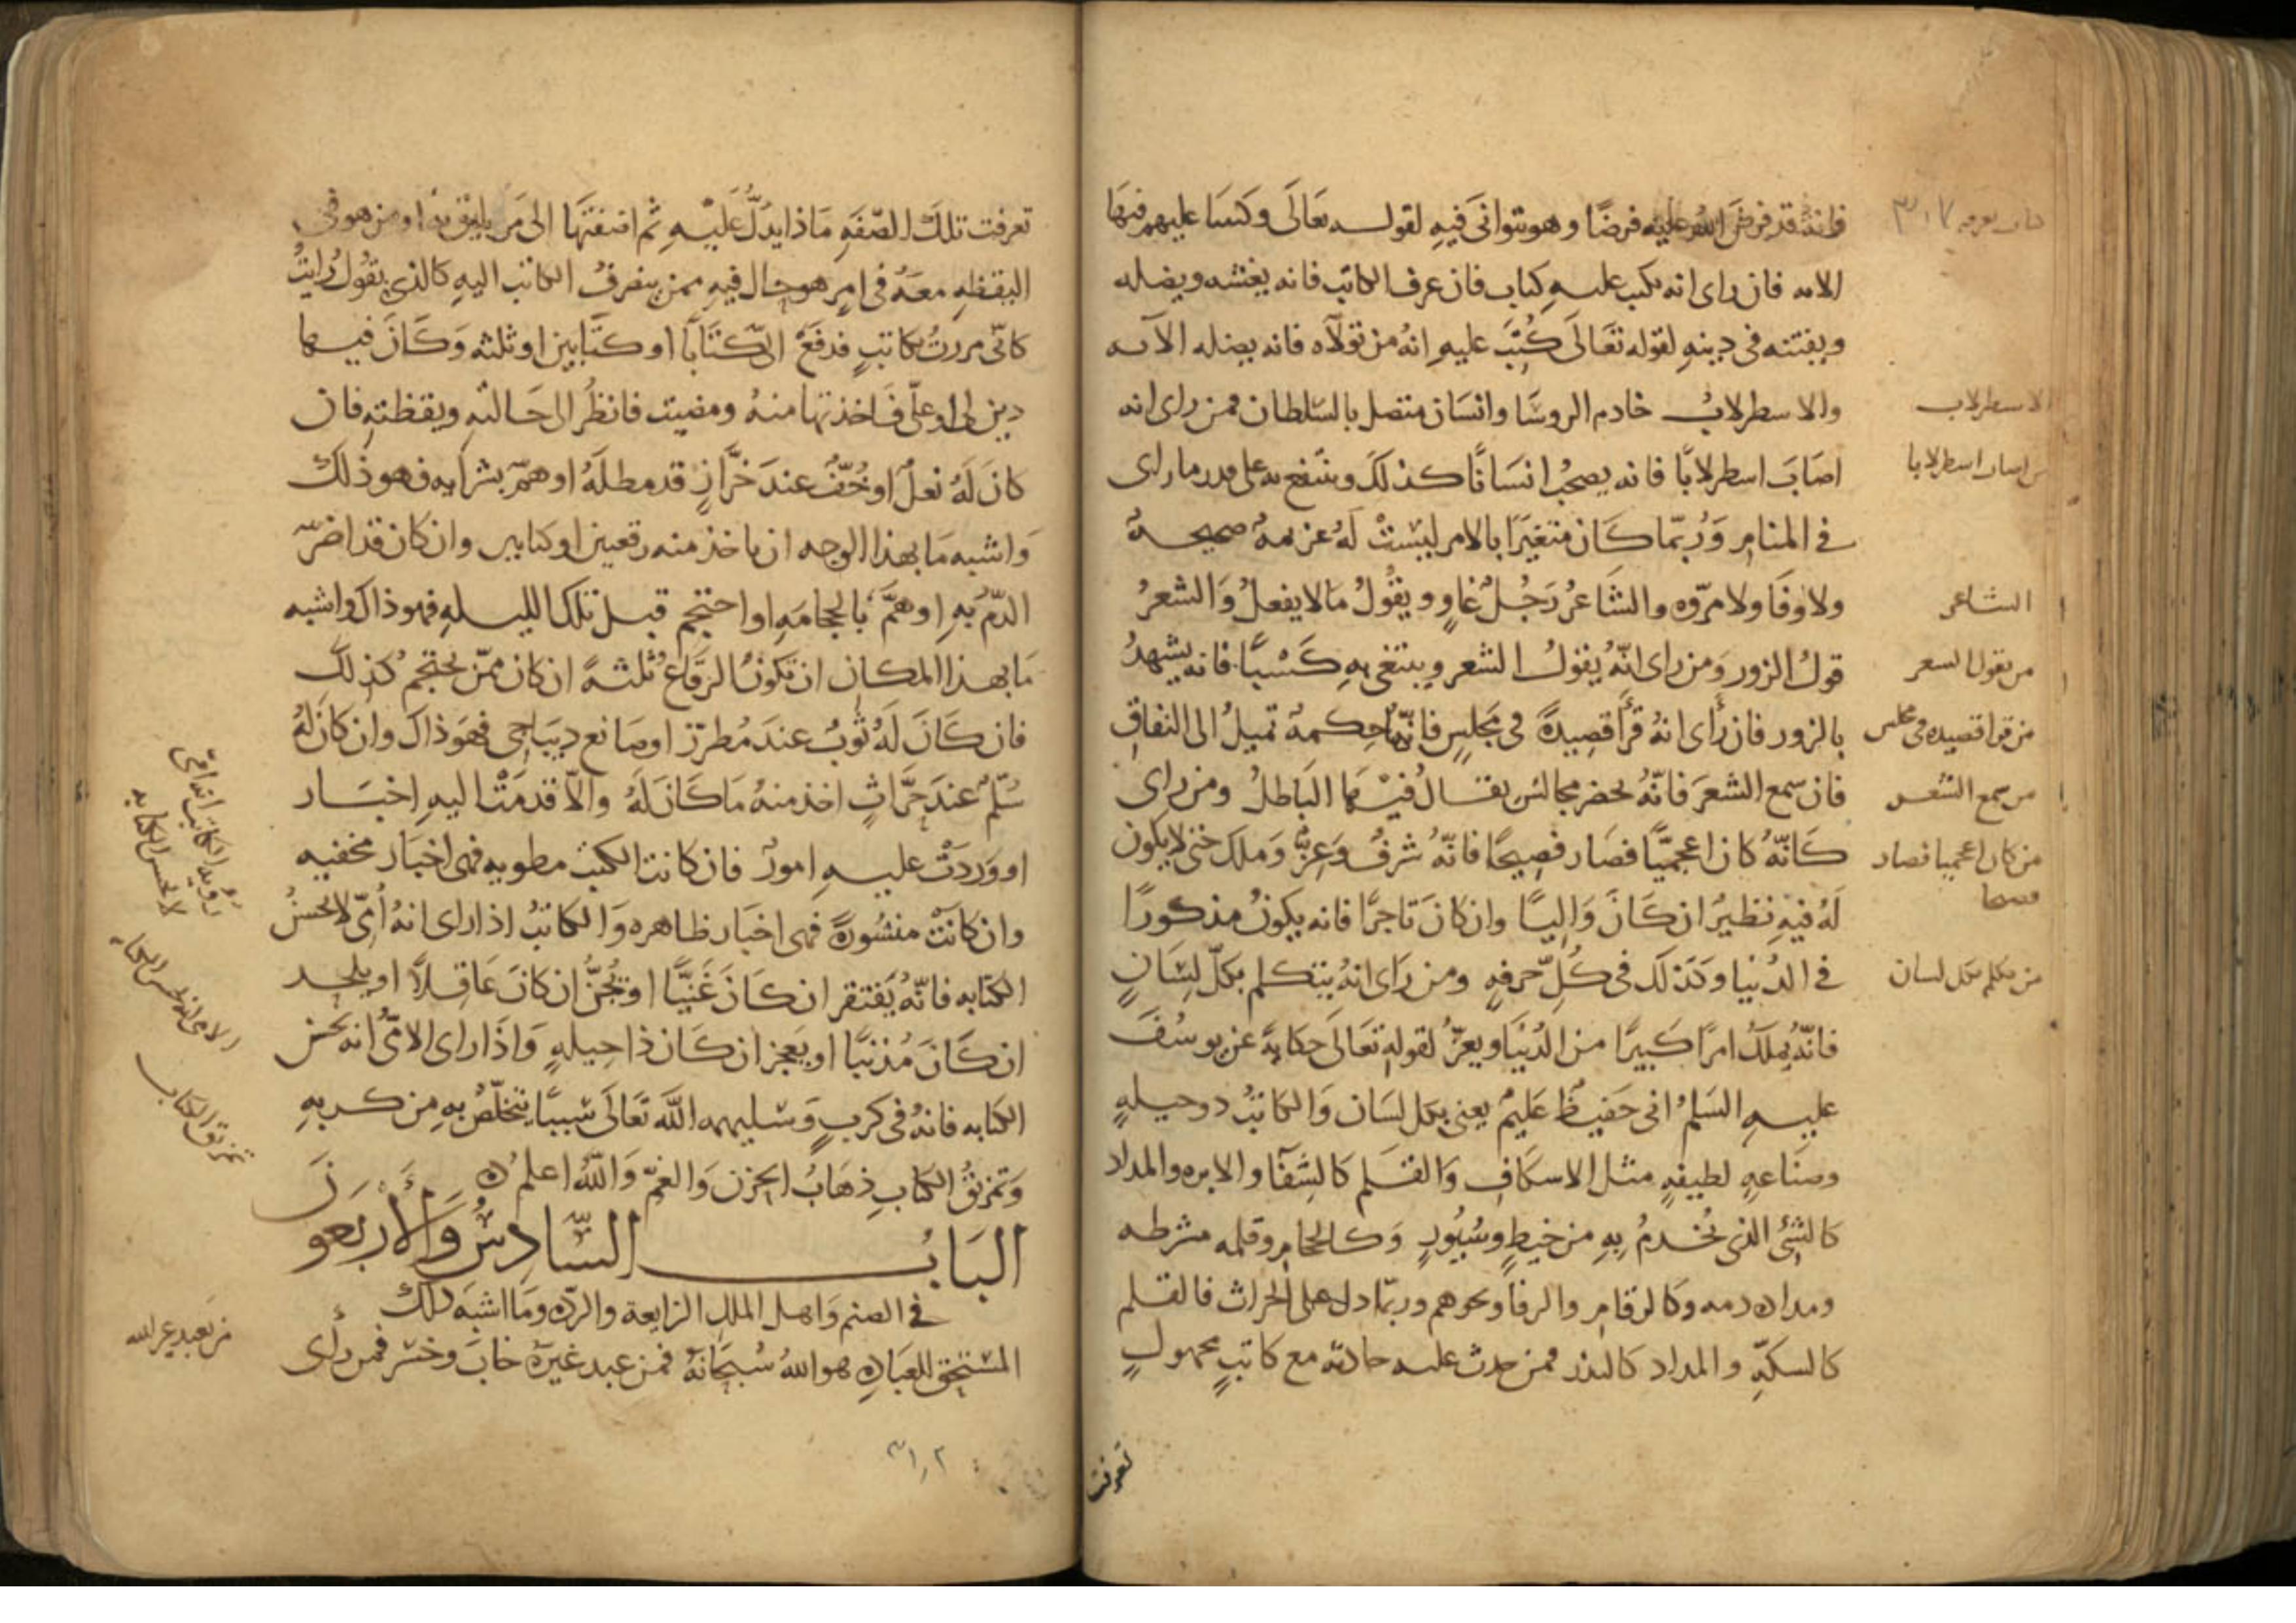 فانه قد فرض الله عليه فرضًا وهو يتوانى فيه لقوله تعالى وكتبنا عليهم فيها
الايه فان راى انه يكتب عليه كتاب فان عرف الكاتب فانه يغشه ويضله
ويفتنه فى دينه لقوله تعَالَى كُتِبَ عليهِ انهُ من تولاه فانه يضله الآيه
والاسطرلابُ خادم الروسَا وانسَان متصل بالسّلطان فمن راى انه
اصَابَ اسطرلابًا فانه يصحبُ انسَانًا كذلكَ وينتفع به على قدر ما راى
في المنامِ وَرُبّما كَان متغيرًا بالامر ليسَتْ لَهُ عزيمهٌ صحيحهٌ
ولا وفَا ولا مرّوه والشَاعرُ رَجُلٌ غاوٍ ويقُولُ مالا يفعلُ وَالشعرُ
قولُ الزور وَمن راى انّهُ يقولُ الشعر ويبتغى بهِ كَسْبًا فانه يشهدُ
بالزور فان رَأى انهُ قرأ قصِيدةً فى مَجلسٍ فانّهَا حِكمةٌ تميلُ الى النفاقِ
فان سمع الشعرَ فانّهُ يحضر مجالسَ يقالُ فيهَا البَاطلُ ومن راى
كَانّهُ كان اعجميًّا فصَار فصِيحًا فانّهُ شرفٌ وَعِزٌّ وَملك حتى لا يكون
لَهُ فيهِ نظيرُ ان كَانَ وَاليًا وان كانَ تاجرًا فانه يكونُ مذكورًا
فى الدُنيا وكذلكَ فى كُلِّ حرفهٍ ومن رَاى انهُ يتكلم بكلّ لسَانٍ
فانّهُ يملكُ امرًا كَبيرًا من الدُنيَا ويعزُّ لقولهِ تعَالَى حكايةً عن يوسُفَ
عليهِ السَلمُ انى حَفيظٌ عَليمٌ يعنى بكل لسَان وَالكاتبُ ذو حيلهٍ
وصنَاعهٍ لطيفهٍ مثل الاسكافِ وَالقلم كَالشِفَا والابره والمداد
كالشِئ الذى يُخدمُ بِهِ من خيطٍ وسُيُورٍ وَكالحجامِ وقلمه مشرطه
ومداده دمه وكالرقام والرفا ونحوهم وربّما دل على الحراث فالقلم
كالسكهِّ والمداد كالبذر فمن حدث عليه حادثه مع كاتبٍ مجهولٍ
تعرفت
الاسطرلاب
من اصاب اسطرلابا
الشاعر
من يقول الشعر
من قرا قصيده فى مجلس
من سمع الشعر
من كان اعجميا فصار
فصيحا
من تكلم بكل لسان
تعرفت تلكَ الصّفَهِ مَاذا يدلُّ عَليْهِ ثم اضفتهَا الى مَن يليق به او من هو فى
اليقظهِ معَهُ فى امرٍ هو حال فيهِ ممن ينصرفُ الكاتب اليهِ كالذى يقُولُ رايتُ
كانّى مررتُ بكاتبٍ فدفعَ الىّ كتَابًا او كتَابين او ثلثه وَكَانَ فيها
دين لى او علىّ فَاخذتها منهُ ومضيت فانظُر الى حَالتهِ ويقظتهِ فان
كانَ لَهُ نعلٌ او خُفٌّ عندَ خرَّازٍ قد مطلَهُ او همّ بشرايه فهو ذلك
وَاشبه مَا بهذا الوجه ان ياخذ منه رقعتين او كتابين وان كان قد اضرّ
الدّمُ بِهِ او همَّ بالحجامَهِ او احتجم قبل تلك الليلهِ فهو ذاك واشبه
مَا بهذا المكان ان تكونَ الرّقاع ثلثهً ان كان ممّن يحتجم كذلك
فان كَانَ لَهُ ثوبٌ عندَ مُطرّز او صَانع ديبَاجٍ فهَوَ ذاكَ وان كانَ لهُ
سُلّمٌ عندَ حَرَّاثٍ اخذ منهُ مَا كَانَ لَهُ والاّ قدمَتْ اليهِ اخبَار
او وَرَدَتْ عليهِ امورٌ فان كانت الكتبُ مطويه فهى اخبَار مخفيه
وان كانَتْ منشُورةً فهى اخبَار ظاهره وَالكاتبُ اذا راى انهُ أمّى لا يحسنُ
الكتابه فانّهُ يَفتقر ان كَانَ غَنيًّا او يُجنُّ ان كانَ عَاقلاً او يلحد
ان كَانَ مُذنبًا او يَعجز ان كَان ذا حيلهٍ وَاذَا راى الامّىُّ انه يحسن
الكتابه فانهُ فى كربٍ وَسَيلهمه اللّهَ تعَالَى سَببًا يتخلّصُ بهِ من كربهِ
وَتمزيقُ الكتابِ ذهَابُ الحزن وَالغمّ وَاللّهُ اعلمُ
البَابُ السّادِسُ وَالأربَعونَ
فى الصنم وَاهل الملل الزايغة والردّه ومَا اشبَه ذلكَ
المستحق للعبَادهِ هو اللهُ سُبحَانَهُ فمن عبد غيرَهُ خابَ وخسَر فمن رأى
رؤيه الكاتب انه امى
لا يحسن الكتابه
الامى انه يحسن الكتابه
تمزيق الكتاب
من يعبد غير الله